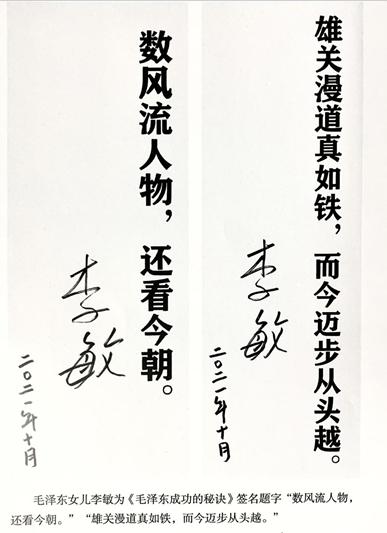 数风流人物，还看今朝。
李敏
二〇二一年十月
雄关漫道真如铁，而今迈步从头越。
李敏
二〇二一年十月
毛泽东女儿李敏为《毛泽东成功的秘诀》签名题字“数风流人物，
还看今朝。”“雄关漫道真如铁，而今迈步从头越。”